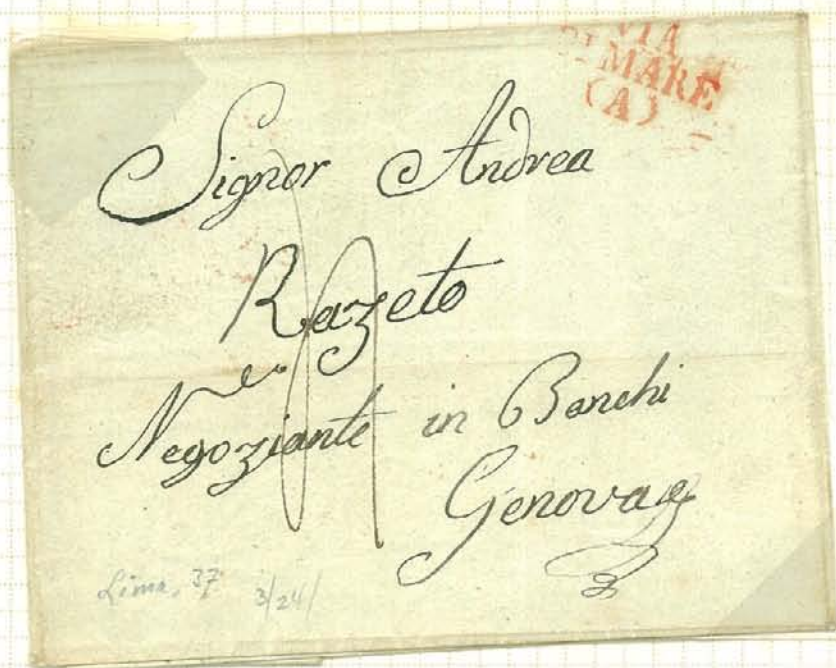 VIA
DI MARE
(A)
Signor Andrea
Razeto
Negoziante in Banchi
Genova
Lima, 37 3/24/